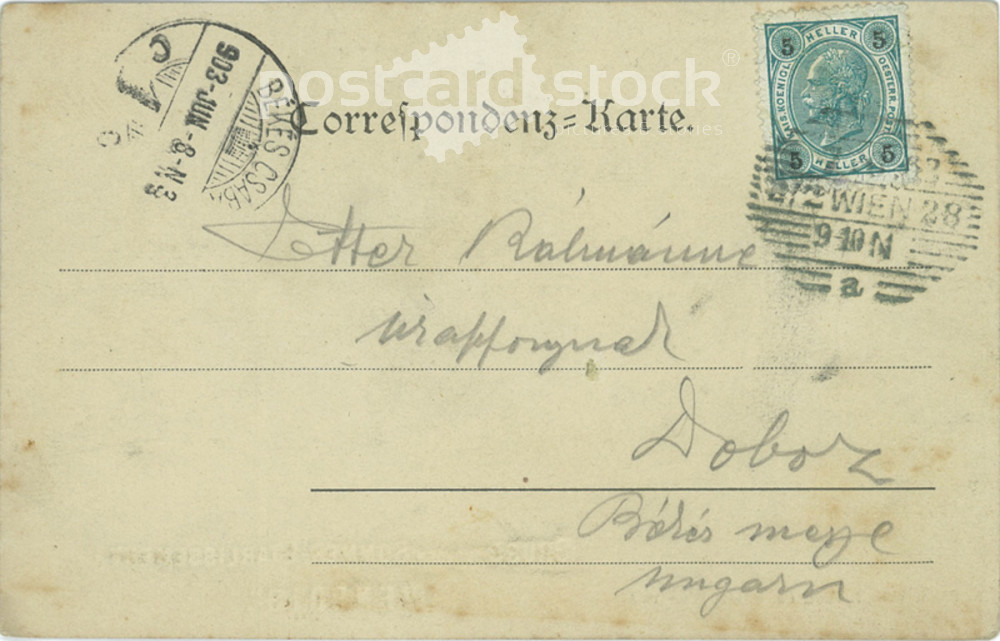 903-JUN.-8-N3
BÉKÉS CSABA
postcard stock
Correspondenz-Karte.
5 HELLER 5
KAIS. KOENIGL. OESTERR. POST
5 HELLER 5
WIEN 28
9-10 N
a
Etter Kálmánné
Doboz
Békés megye
Ungarn